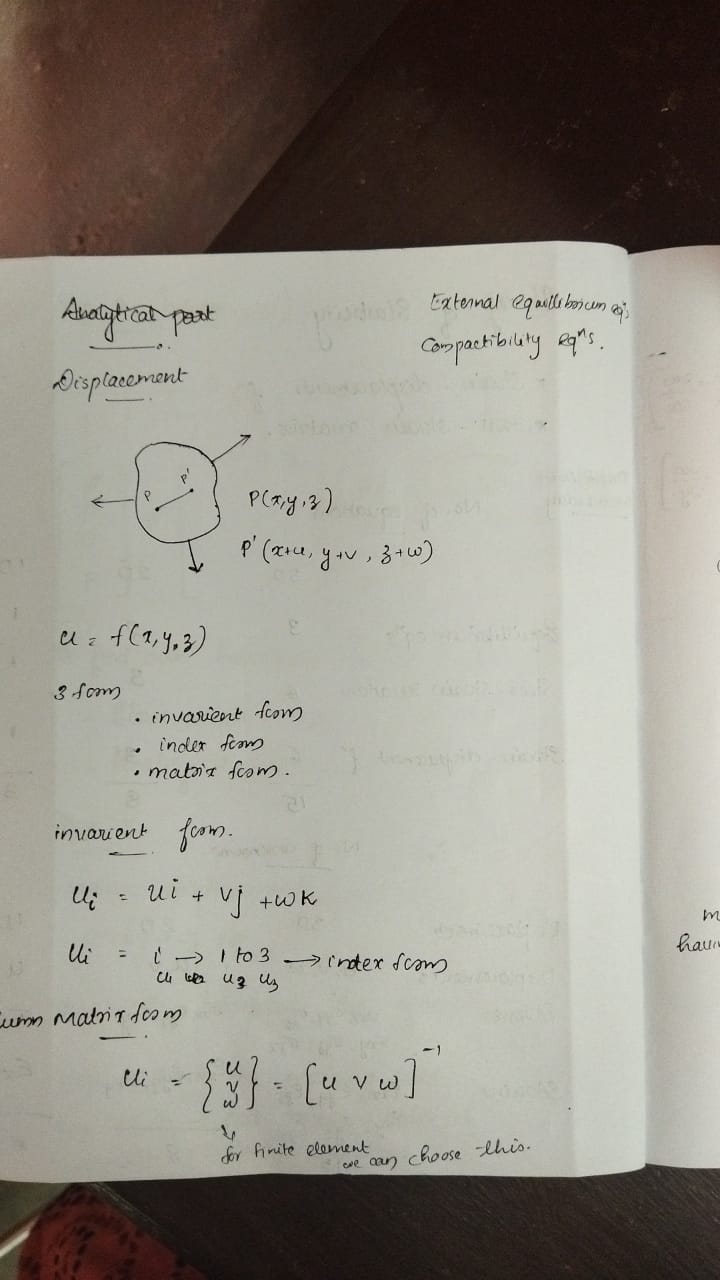 Analytical part
External equillibrium eqns
Compactibility eqns.
Displacement
P'
P
P(x,y,z)
P'(x+u, y+v, z+w)
u = f(x,y,z)
3 form
• invarient form
• index form
• matrix form.
invarient form.
Ui = ui + vj + wk
Ui = i → 1 to 3 → index form
u1 u2 u3
Matrix form
Ui = {u v w} = [u v w]⁻¹
for finite element
we can choose this.